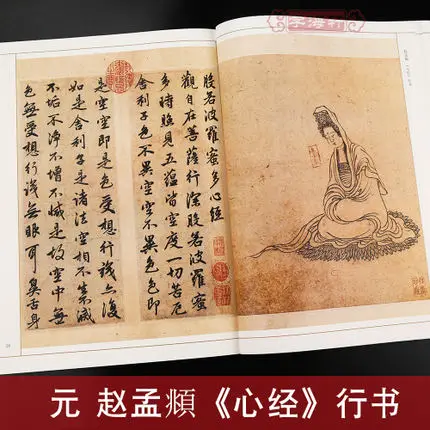 般若波羅蜜多心經
觀自在菩薩行深般若波羅蜜
多時照見五蘊皆空度一切苦厄
舍利子色不異空空不異色色即
是空空即是色受想行識亦復
如是舍利子是諸法空相不生不滅
不垢不淨不增不減是故空中無
色無受想行識無眼耳鼻舌身
元 赵孟頫《心经》行书